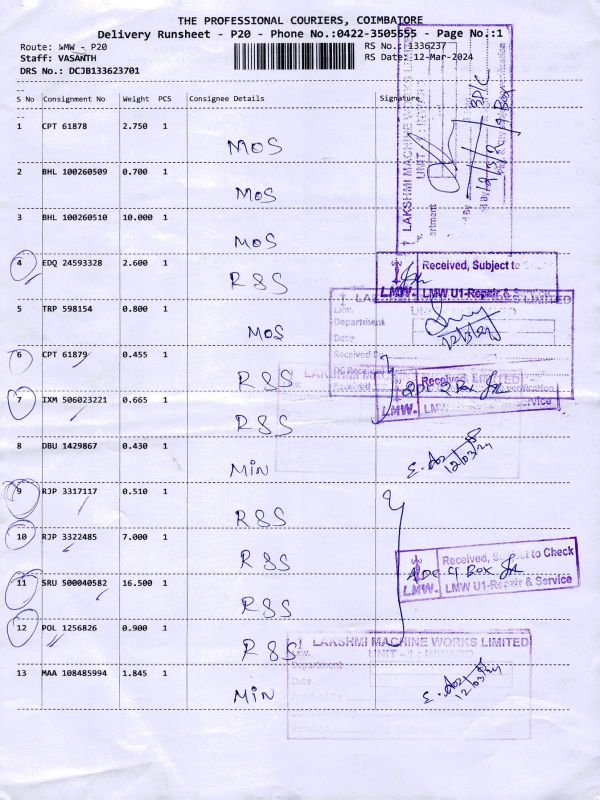 THE PROFESSIONAL COURIERS, COIMBATORE
Delivery Runsheet - P20 - Phone No.:0422-3505555 - Page No.:1
Route: WMW - P20
RS No.: 1336237
Staff: VASANTH
RS Date: 12-Mar-2024
DRS No.: DCJB133623701
S No Consignment No Weight PCS Consignee Details Signature
1 CPT 61878 2.750 1
MOS
2 BHL 100260509 0.700 1
MOS
3 BHL 100260510 10.000 1
MOS
4 EDQ 24593328 2.600 1
R&S
5 TRP 598154 0.800 1
MOS
6 CPT 61879 0.455 1
R&S
7 IXM 506023221 0.665 1
R&S
8 DBU 1429867 0.430 1
MIN
9 RJP 3317117 0.510 1
R&S
10 RJP 3322485 7.000 1
R&S
11 SRU 500040582 16.500 1
R&S
12 POL 1256826 0.900 1
R&S
13 MAA 108485994 1.845 1
MIN
LAKSHMI MACHINE WORKS
UNIT
Received, Subject to
LMW. LMW U1-Repair & Service
LAKSHMI MACHINE WORKS LIMITED
Department
Date
Received By
12/3/24
Received
LMW.
12/03/24
Received, Subject to Check
4 Box
LMW. LMW U1-Repair & Service
LAKSHMI MACHINE WORKS LIMITED
UNIT - 1 : INWARD
Department
Date
Received By
12/03/24